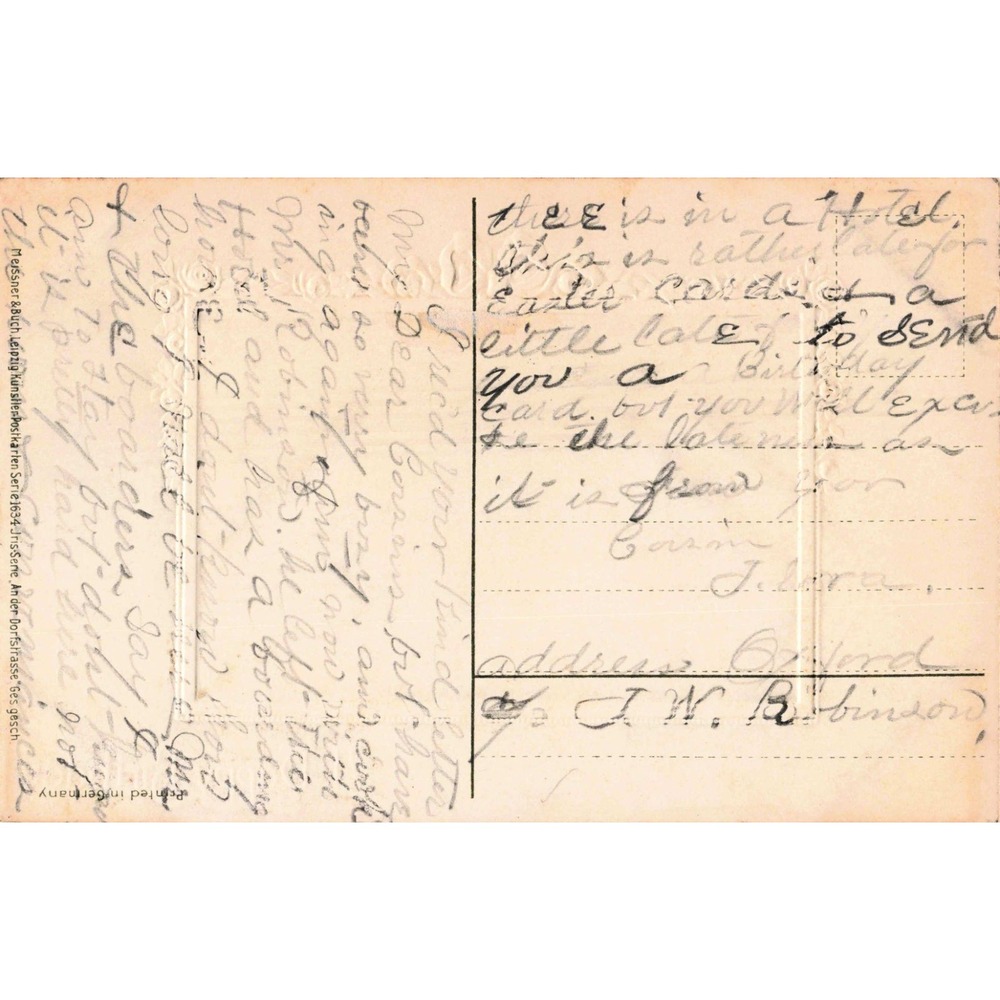 I recd your kind letter
My Dear Cousin, but have
been so very busy, and cook
ing again. Am now with
Mrs Robinson. he left this
Hotel and has a boarding
house, I dont know how
long I shall be with Mrs
& the boarders say I
am to stay but dont know
it is pretty hard here not
there is in a Hotel,
this is rather late for
Easter Card and a
little late to send
you a Birthday
Card. but you will excu
se the lateness as
it is from your
Cousin
address Oxford
c/o J. W. Robinson
Printed in Germany
Meissner & Buch, Leipzig Künstler-Postkarten Serie 1634 „Iris-Serie, An der Dorfstrasse" Ges. gesch